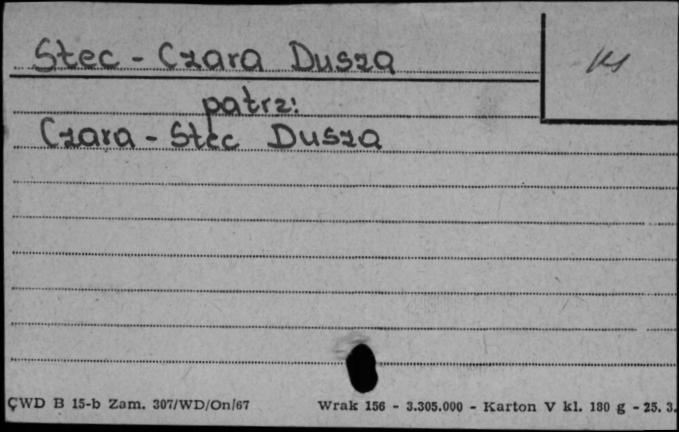 Stec - Czara Dusza
patrz:
Czara - Stec Dusza
ÇWD B 15-b Zam. 307/WD/On/67 Wrak 156 - 3.305.000 - Karton V kl. 180 g - 25. 3.